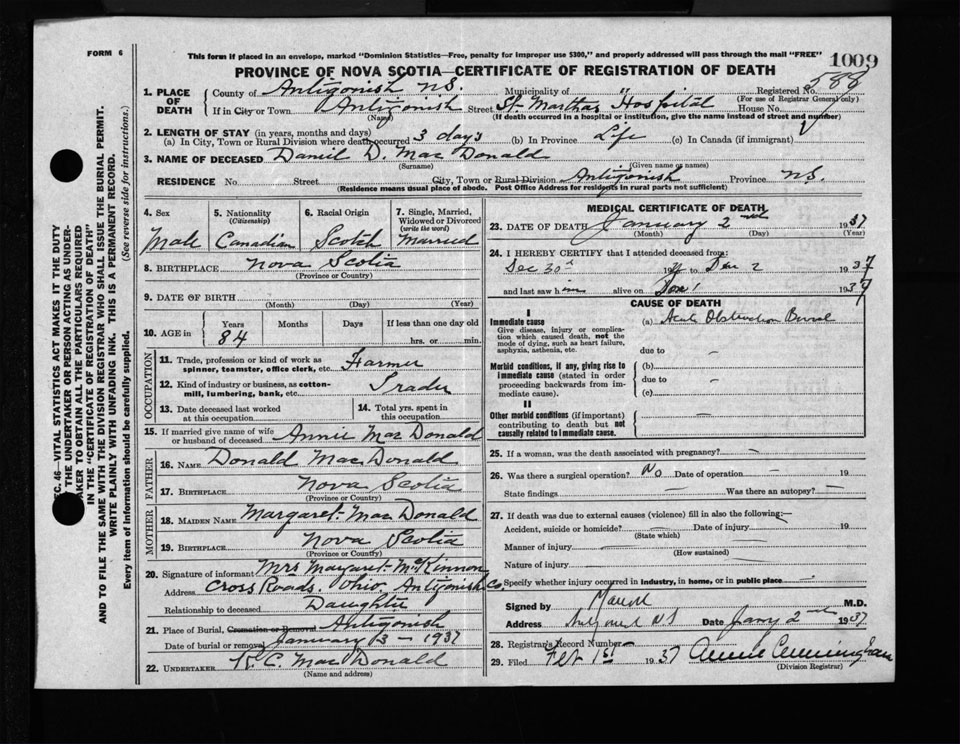 FORM 6
This form if placed in an envelope, marked "Dominion Statistics—Free, penalty for improper use $300," and properly addressed will pass through the mail "FREE"
1009
PROVINCE OF NOVA SCOTIA—CERTIFICATE OF REGISTRATION OF DEATH
588
1. PLACE OF DEATH
County of Antigonish N.S. Municipality of " Registered No.
(For use of Registrar General only)
If in City or Town Antigonish Street St. Marthas Hospital House No.
(Name) (If death occurred in a hospital or institution, give the name instead of street and number)
2. LENGTH OF STAY (in years, months and days)
(a) In City, Town or Rural Division where death occurred 3 days (b) In Province Life (c) In Canada (if immigrant)
3. NAME OF DECEASED Daniel D. Mac Donald
(Surname) (Given name or names)
RESIDENCE No. Street City, Town or Rural Division Antigonish Province N.S.
(Residence means usual place of abode. Post Office Address for residents in rural parts not sufficient)
4. Sex
Male
5. Nationality
(Citizenship)
Canadian
6. Racial Origin
Scotch
7. Single, Married, Widowed or Divorced
(write the word)
Married
8. BIRTHPLACE Nova Scotia
(Province or Country)
9. DATE OF BIRTH
(Month) (Day) (Year)
10. AGE in Years Months Days If less than one day old
84 hrs. or min.
OCCUPATION
11. Trade, profession or kind of work as spinner, teamster, office clerk, etc. Farmer
12. Kind of industry or business, as cotton-mill, lumbering, bank, etc. Trader
13. Date deceased last worked at this occupation
14. Total yrs. spent in this occupation
15. If married give name of wife or husband of deceased Annie Mac Donald
FATHER
16. NAME Donald Mac Donald
17. BIRTHPLACE Nova Scotia
(Province or Country)
MOTHER
18. MAIDEN NAME Margaret Mac Donald
19. BIRTHPLACE Nova Scotia
(Province or Country)
20. Signature of informant Mrs Margaret McKinnon
Address Cross Roads Ohio Antigonish Co.
Relationship to deceased Daughter
21. Place of Burial, Cremation or Removal Antigonish
Date of burial or removal January 3 - 1937
22. UNDERTAKER R. C. Mac Donald
(Name and address)
MEDICAL CERTIFICATE OF DEATH
23. DATE OF DEATH January 2nd 1937
(Month) (Day) (Year)
24. I HEREBY CERTIFY that I attended deceased from:
Dec 30th 19 to 2 1937
and last saw him alive on Jan 1 1937
CAUSE OF DEATH
I
Immediate cause
Give disease, injury or complication which caused death, not the mode of dying, such as heart failure, asphyxia, asthenia, etc.
(a) Acute Obstruction Bowel
due to —
Morbid conditions, if any, giving rise to immediate cause (stated in order proceeding backwards from immediate cause).
(b)
due to —
(c)
II
Other morbid conditions (if important) contributing to death but not causally related to immediate cause.
25. If a woman, was the death associated with pregnancy? —
26. Was there a surgical operation? No Date of operation — 19
State findings — Was there an autopsy? —
27. If death was due to external causes (violence) fill in also the following:—
Accident, suicide or homicide? — Date of injury — 19
(State which)
Manner of injury —
(How sustained)
Nature of injury —
Specify whether injury occurred in industry, in home, or in public place —
Signed by M.D.
Address Date Jany 2nd 1937
28. Registrar's Record Number —
29. Filed Feb 1st 1937 Annie Cunningham
(Division Registrar)
SEC. 46—VITAL STATISTICS ACT MAKES IT THE DUTY
OF THE UNDERTAKER OR PERSON ACTING AS UNDER-
TAKER TO OBTAIN ALL THE PARTICULARS REQUIRED
IN THE "CERTIFICATE OF REGISTRATION OF DEATH"
AND TO FILE THE SAME WITH THE DIVISION REGISTRAR WHO SHALL ISSUE THE BURIAL PERMIT.
WRITE PLAINLY WITH UNFADING INK. THIS IS A PERMANENT RECORD.
Every item of information should be carefully supplied. (See reverse side for instructions.)